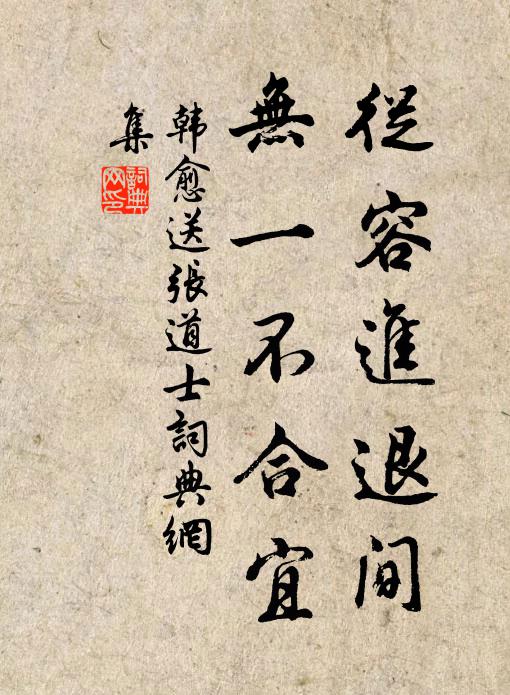 從容進退間
無一不合宜
韩愈送張道士詞典網
集
詞典
网印